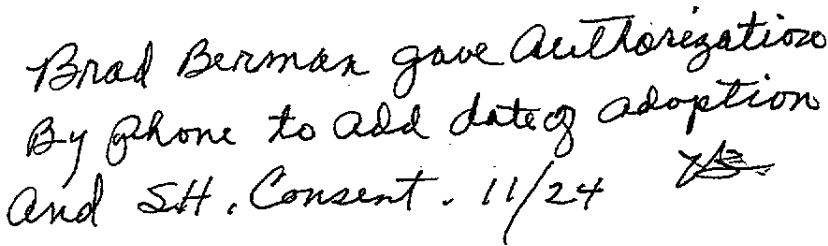 Brad Berman gave Authorization
By Phone to add date of adoption
And SH. Consent. 11/24